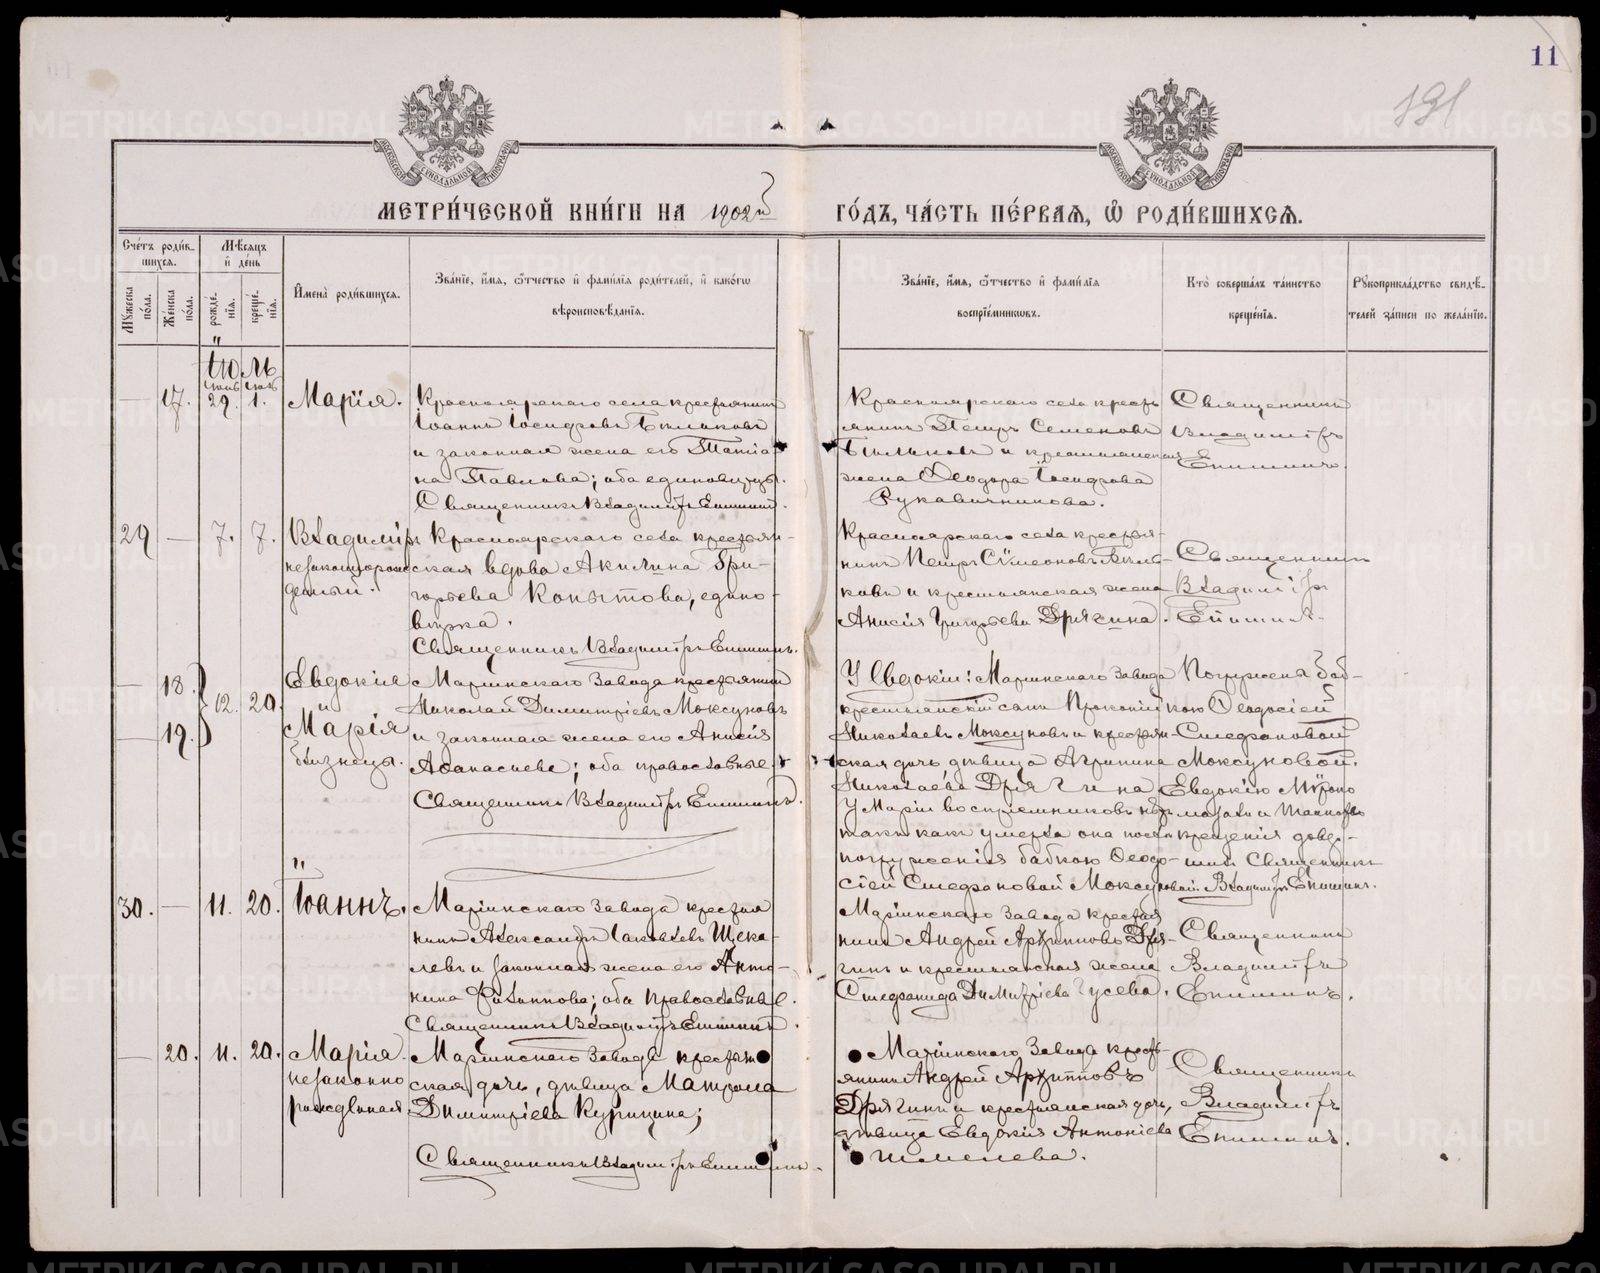 11
191
МЕТРИ́ЧЕСКОЙ КНИ́ГИ НА 1902й ГО́ДЪ, ЧА́СТЬ ПЕ́РВАѦ, Ѡ҆ РОДИ́ВШИХСѦ.
Сче́тъ роди́в-
шихсѧ.
Мꙋжеска по́ла.
Же́нска по́ла.
Мѣ́сѧцъ
и҆ де́нь
рожде́-
нїѧ.
креще́-
нїѧ.
И҆мена̀ роди́вшихсѧ.
Зва́нїе, и҆́мѧ, ѻ҆́тчество и҆ фами́лїѧ роди́телей, и҆ како́гѡ
вѣроисповѣ́данїѧ.
Зва́нїе, и҆́мѧ, ѻ҆́тчество и҆ фами́лїѧ
воспрїе́мникѡвъ.
Кто̀ соверша́лъ та́инство
креще́нїѧ.
Рꙋкоприкла́дство свидѣ́-
телей за́писи по жела́нїю.
Іюль
17. 29. 1. Марія.
Красноярскаго села крестьянинъ
Іоаннъ Іосифовъ Бѣльковъ
и законная жена его Татіа-
на Павлова; оба единовѣрцы.
Священникъ Владиміръ Епишинъ.
Красноярскаго села кресть
янинъ Петръ Семеновъ
Бѣльковъ и крестьянская
жена Ѳеодора Іосифова
Рукавичникова.
Священникъ
Владиміръ
Епишинъ.
29 — 7. 7. Владиміръ
незаконнорож
денный.
Красноярскаго села крестьян-
ская вдова Акилина Гри-
горьева Копытова, едино-
вѣрка.
Священникъ Владиміръ Епишинъ.
Красноярскаго села крестья-
нинъ Петръ Симеоновъ Бѣль-
ковъ и крестьянская жена
Анисія Григорьева Дрягина.
Священникъ
Владиміръ
Епишинъ
— 18.
— 19.
12. 20.
Евдокія
и
Марія
близнецы.
Маріинскаго Завода крестьянинъ
Николай Димитріевъ Моксуновъ
и законная жена его Анисія
Аѳанасьева; оба православные.
Священникъ Владиміръ Епишинъ.
У Евдокіи: Маріинскаго Завода
крестьянскій сынъ Прокопій
Николаевъ Моксуновъ и крестьян-
ская дочь девица Агрипина
Николаева Дрягина
У Маріи воспріемниковъ не было
такъ какъ умерла она послѣ
погруженія бабкою Ѳеодо-
сіей Стефановой Моксуновой.
Погружена баб-
кою Ѳеодосіей
Стефановой
Моксуновой.
Евдокію Мѵропо
мазалъ и таинство
крещенія довер-
шилъ Священникъ
Владиміръ Епишинъ.
30. — 11. 20. Іоаннъ.
Маріинскаго Завода крестья
нинъ Александръ Іаковлевъ Щека-
левъ и законная жена его Анто-
нина Филиппова; оба православные.
Священникъ Владиміръ Епишинъ.
Маріинскаго Завода крестья
нинъ Андрей Архипповъ Дря-
гинъ и крестьянская жена
Стефанида Димитріева Гусева.
Священникъ
Владиміръ
Епишинъ.
— 20. 11. 20. Марія
незаконно
рожденная
Маріинскаго Завода крестьян
ская дочь, девица Матрона
Димитріева Курицина;
Священникъ Владиміръ Епишинъ.
Маріинскаго Завода кресть-
янинъ Андрей Архипповъ
Дрягинъ и крестьянская дочь,
девица Евдокія Антоніева
Шмелева.
Священникъ
Владиміръ
Епишинъ.